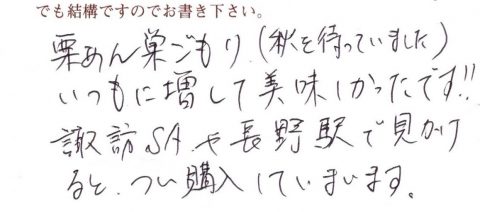 でも結構ですのでお書き下さい。
栗あん巣ごもり(秋を待っていました)
いつもに増して美味しかったです!!
諏訪SAや長野駅で見かけ
ると、つい購入しています。